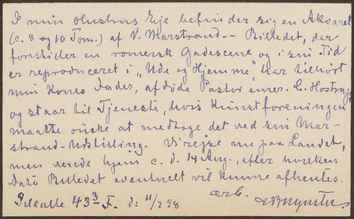 I min Hustrus Eje befinder sig en Akvarel
(c. 8 og 10 Tom.) af V. Marstrand. – Billedet, der
forestiller en romersk Gadescene og i sin Tid
er reproduceret i „Ude og Hjemme", har tilhørt
min Kones Fader, afdøde Pastor emer. C. Hostrup
og staar til Tjeneste, hvis Kunstforeningen
maatte ønske at medtage det ved sin Mar-
strand-Udstilling. Vi rejse nu paa Landet,
men vende hjem c. d. 14 Aug., efter hvilken
Dato Billedet eventuelt vil kunne afhentes.
ærb.
Gl. 43 d. 11/7 98